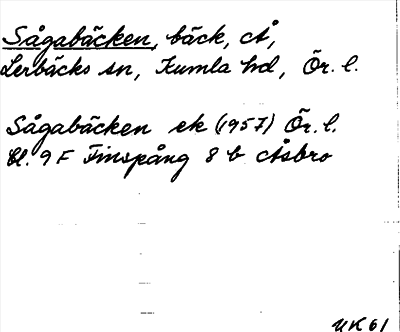 Sågabäcken, bäck, å,
Lerbäcks sn, Kumla hd, Ör. l.
Sågabäcken ek (1957) Ör. l.
Bl. 9 F Finspång 8 b Åsbro
UK 61